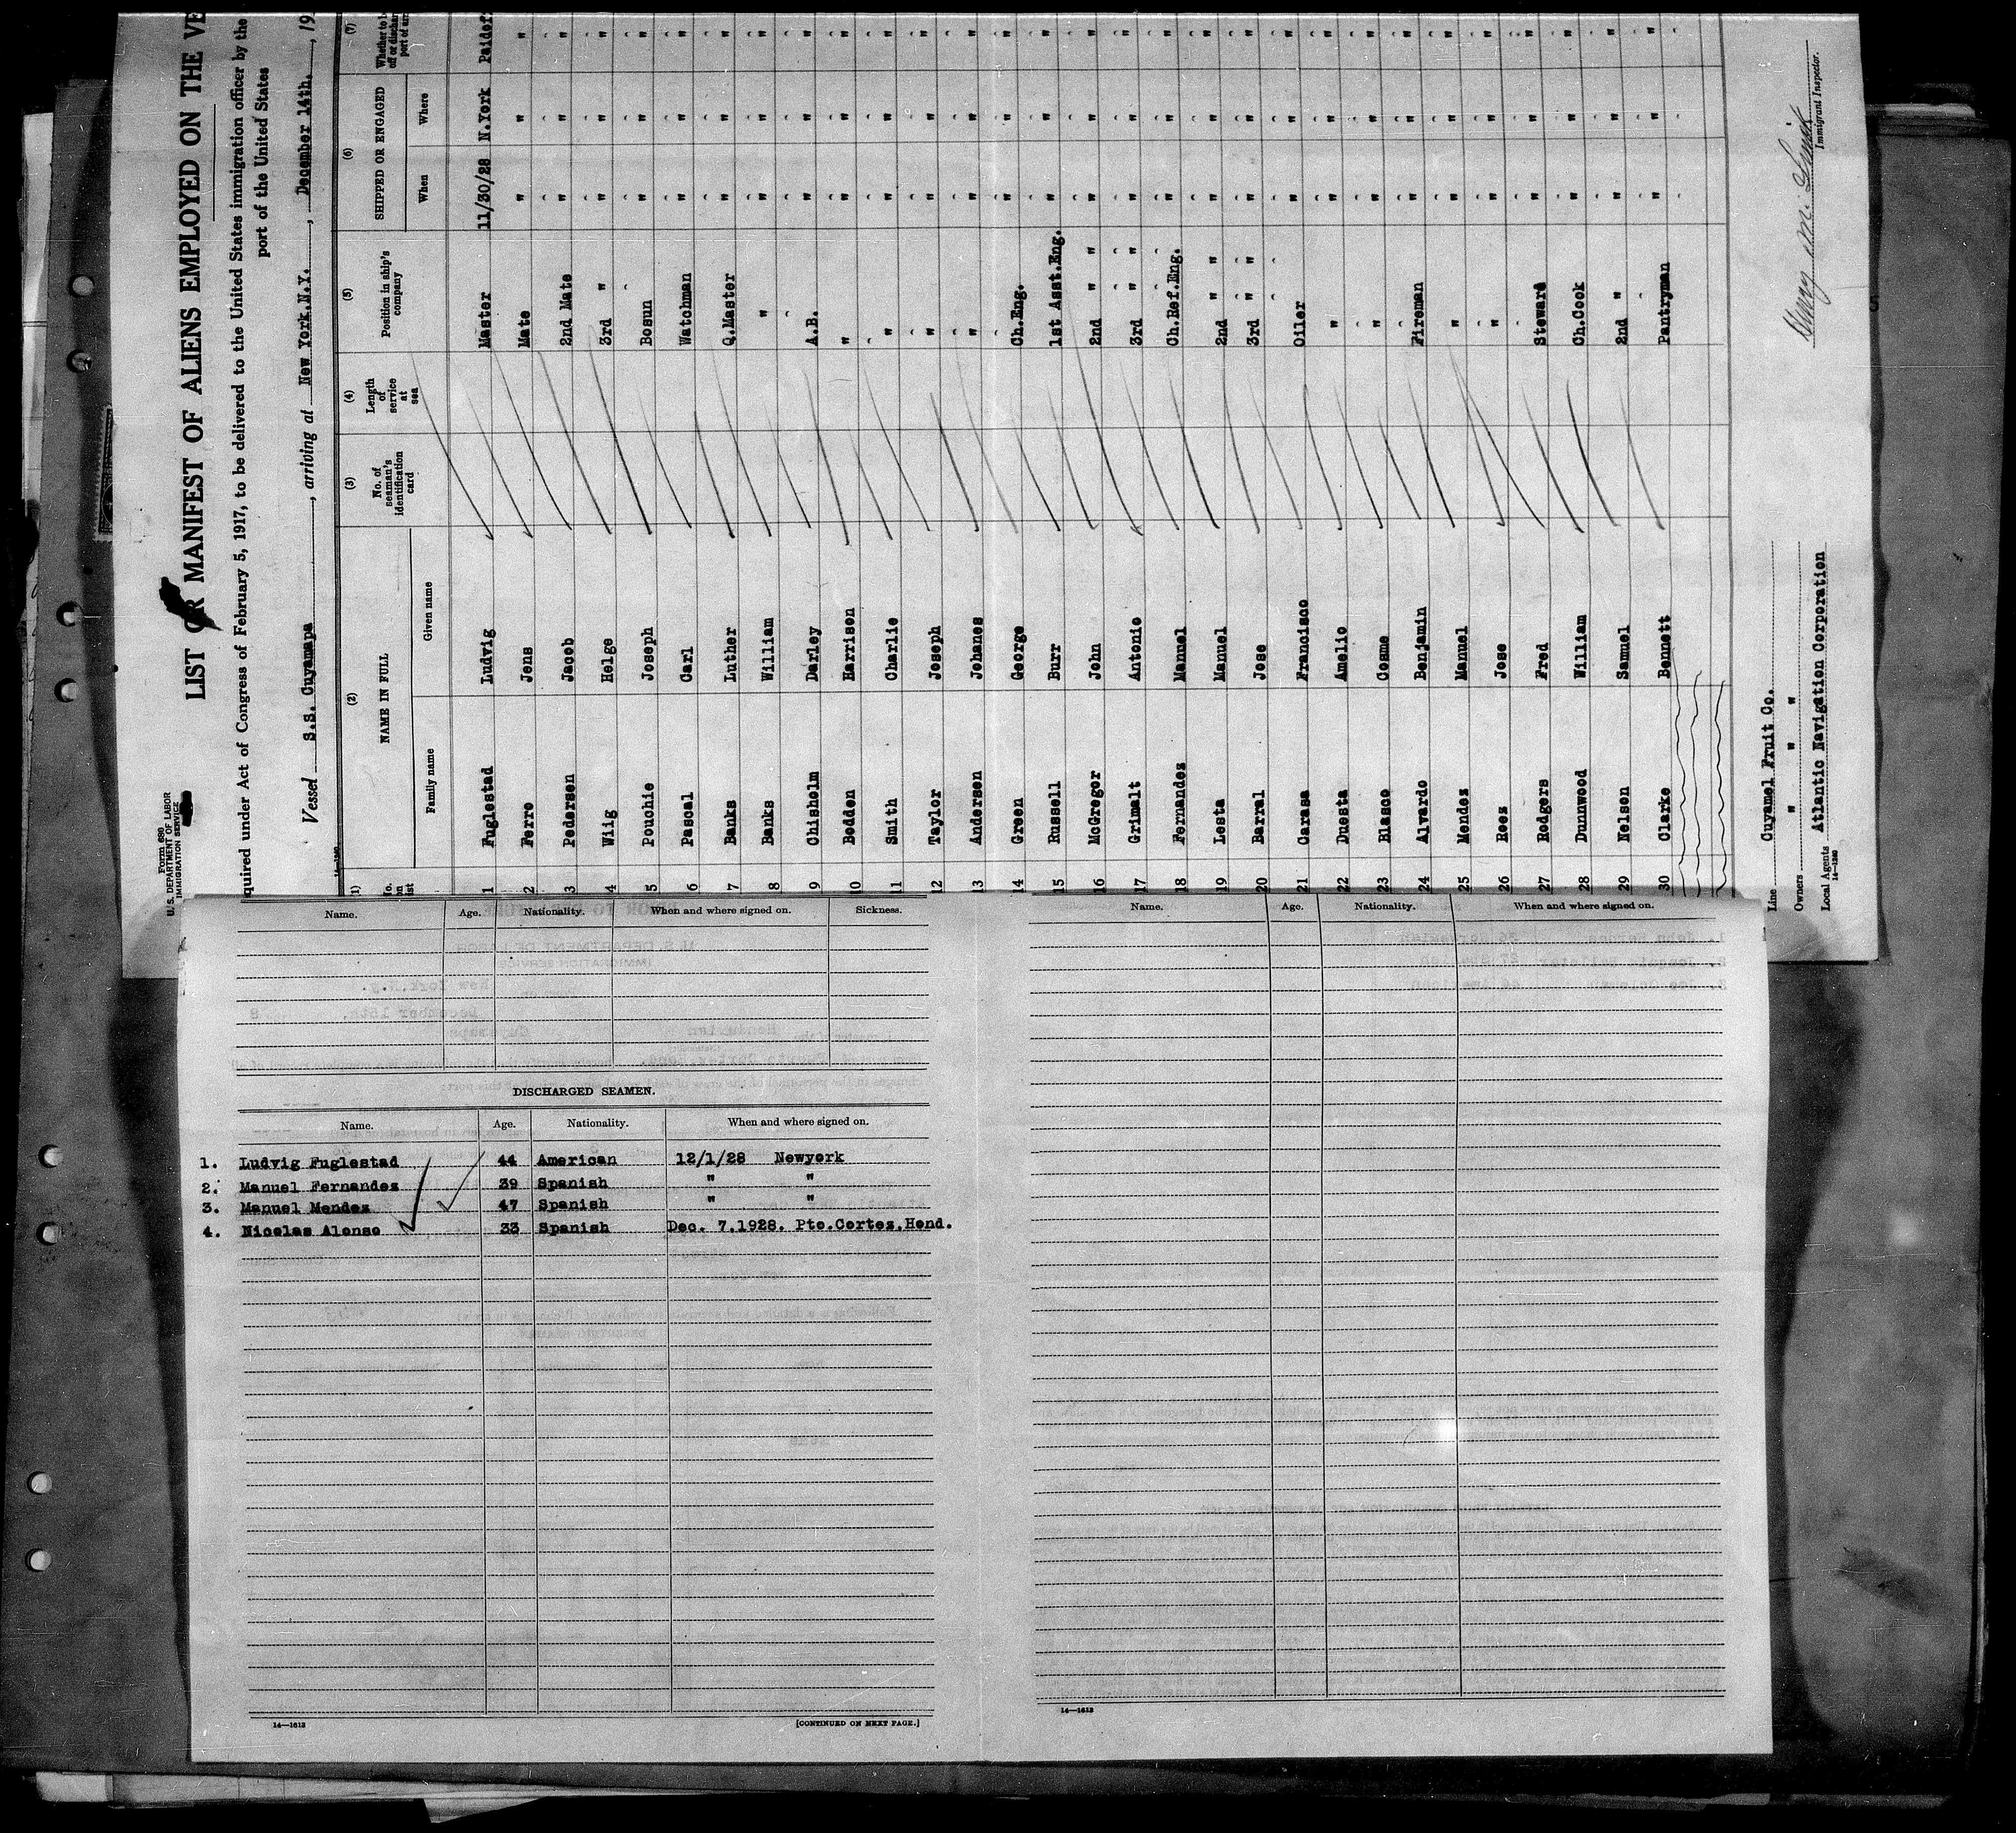 Form 680
U. S. DEPARTMENT OF LABOR
IMMIGRATION SERVICE
LIST OR MANIFEST OF ALIENS EMPLOYED ON THE VE
quired under Act of Congress of February 5, 1917, to be delivered to the United States immigration officer by the
port of the United States
Vessel S.S. Cuyamapa, arriving at New York.N.Y., December 14th., 19
(1) (2) (3) (4) (5) (6) (7)
NAME IN FULL No. of seaman's identification card Length of service at sea Position in ship's company SHIPPED OR ENGAGED
Family name Given name When Where
1 Fuglestad Ludvig Master 11/30/28 N.York Paidof
2 Ferre Jens Mate " " "
3 Pedersen Jacob 2nd Mate " " "
4 Wiig Helge 3rd " " " "
5 Pouchie Joseph Bosun " " "
6 Pascal Carl Watchman " " "
7 Banks Luther Q.Master " " "
8 Banks William " " " "
9 Chisholm Darley A.B. " " "
10 Bodden Harrison " " " "
11 Smith Charlie " " " "
12 Taylor Joseph " " " "
13 Andersen Johanes " " " "
14 Green George Ch.Eng. " " "
15 Russell Burr 1st Asst.Eng. " " "
16 McGregor John 2nd " " " " "
17 Grimalt Antonio 3rd " " " " "
18 Fernandez Manuel Ch.Ref.Eng. " " "
19 Lesta Manuel 2nd " " " " "
20 Barral Jose 3rd " " " " "
21 Carasa Francisco Oiler " " "
22 Duesta Amelio " " " "
23 Blasco Cosme " " " "
24 Alvardo Benjamin Fireman " " "
25 Mendez Manuel " " " "
26 Roez Jose " " " "
27 Rodgers Fred Steward " " "
28 Dunnwood William Ch.Cook " " "
29 Nelson Samuel 2nd " " " "
30 Clarke Bennett Pantryman " " "
Line Cuyamel Fruit Co.
Owners " " "
Local Agents Atlantic Navigation Corporation
14—1240
Immigrant Inspector.
Name. Age. Nationality. When and where signed on. Sickness.
DISCHARGED SEAMEN.
Name. Age. Nationality. When and where signed on.
1. Ludvig Fuglestad 44 American 12/1/28 Newyork
2. Manuel Fernandez 39 Spanish " "
3. Manuel Mendez 47 Spanish " "
4. Nicolas Alonso 33 Spanish Dec. 7.1928. Pto.Cortez.Hond.
14—1613
[CONTINUED ON NEXT PAGE.]
Name. Age. Nationality. When and where signed on.
14—1613